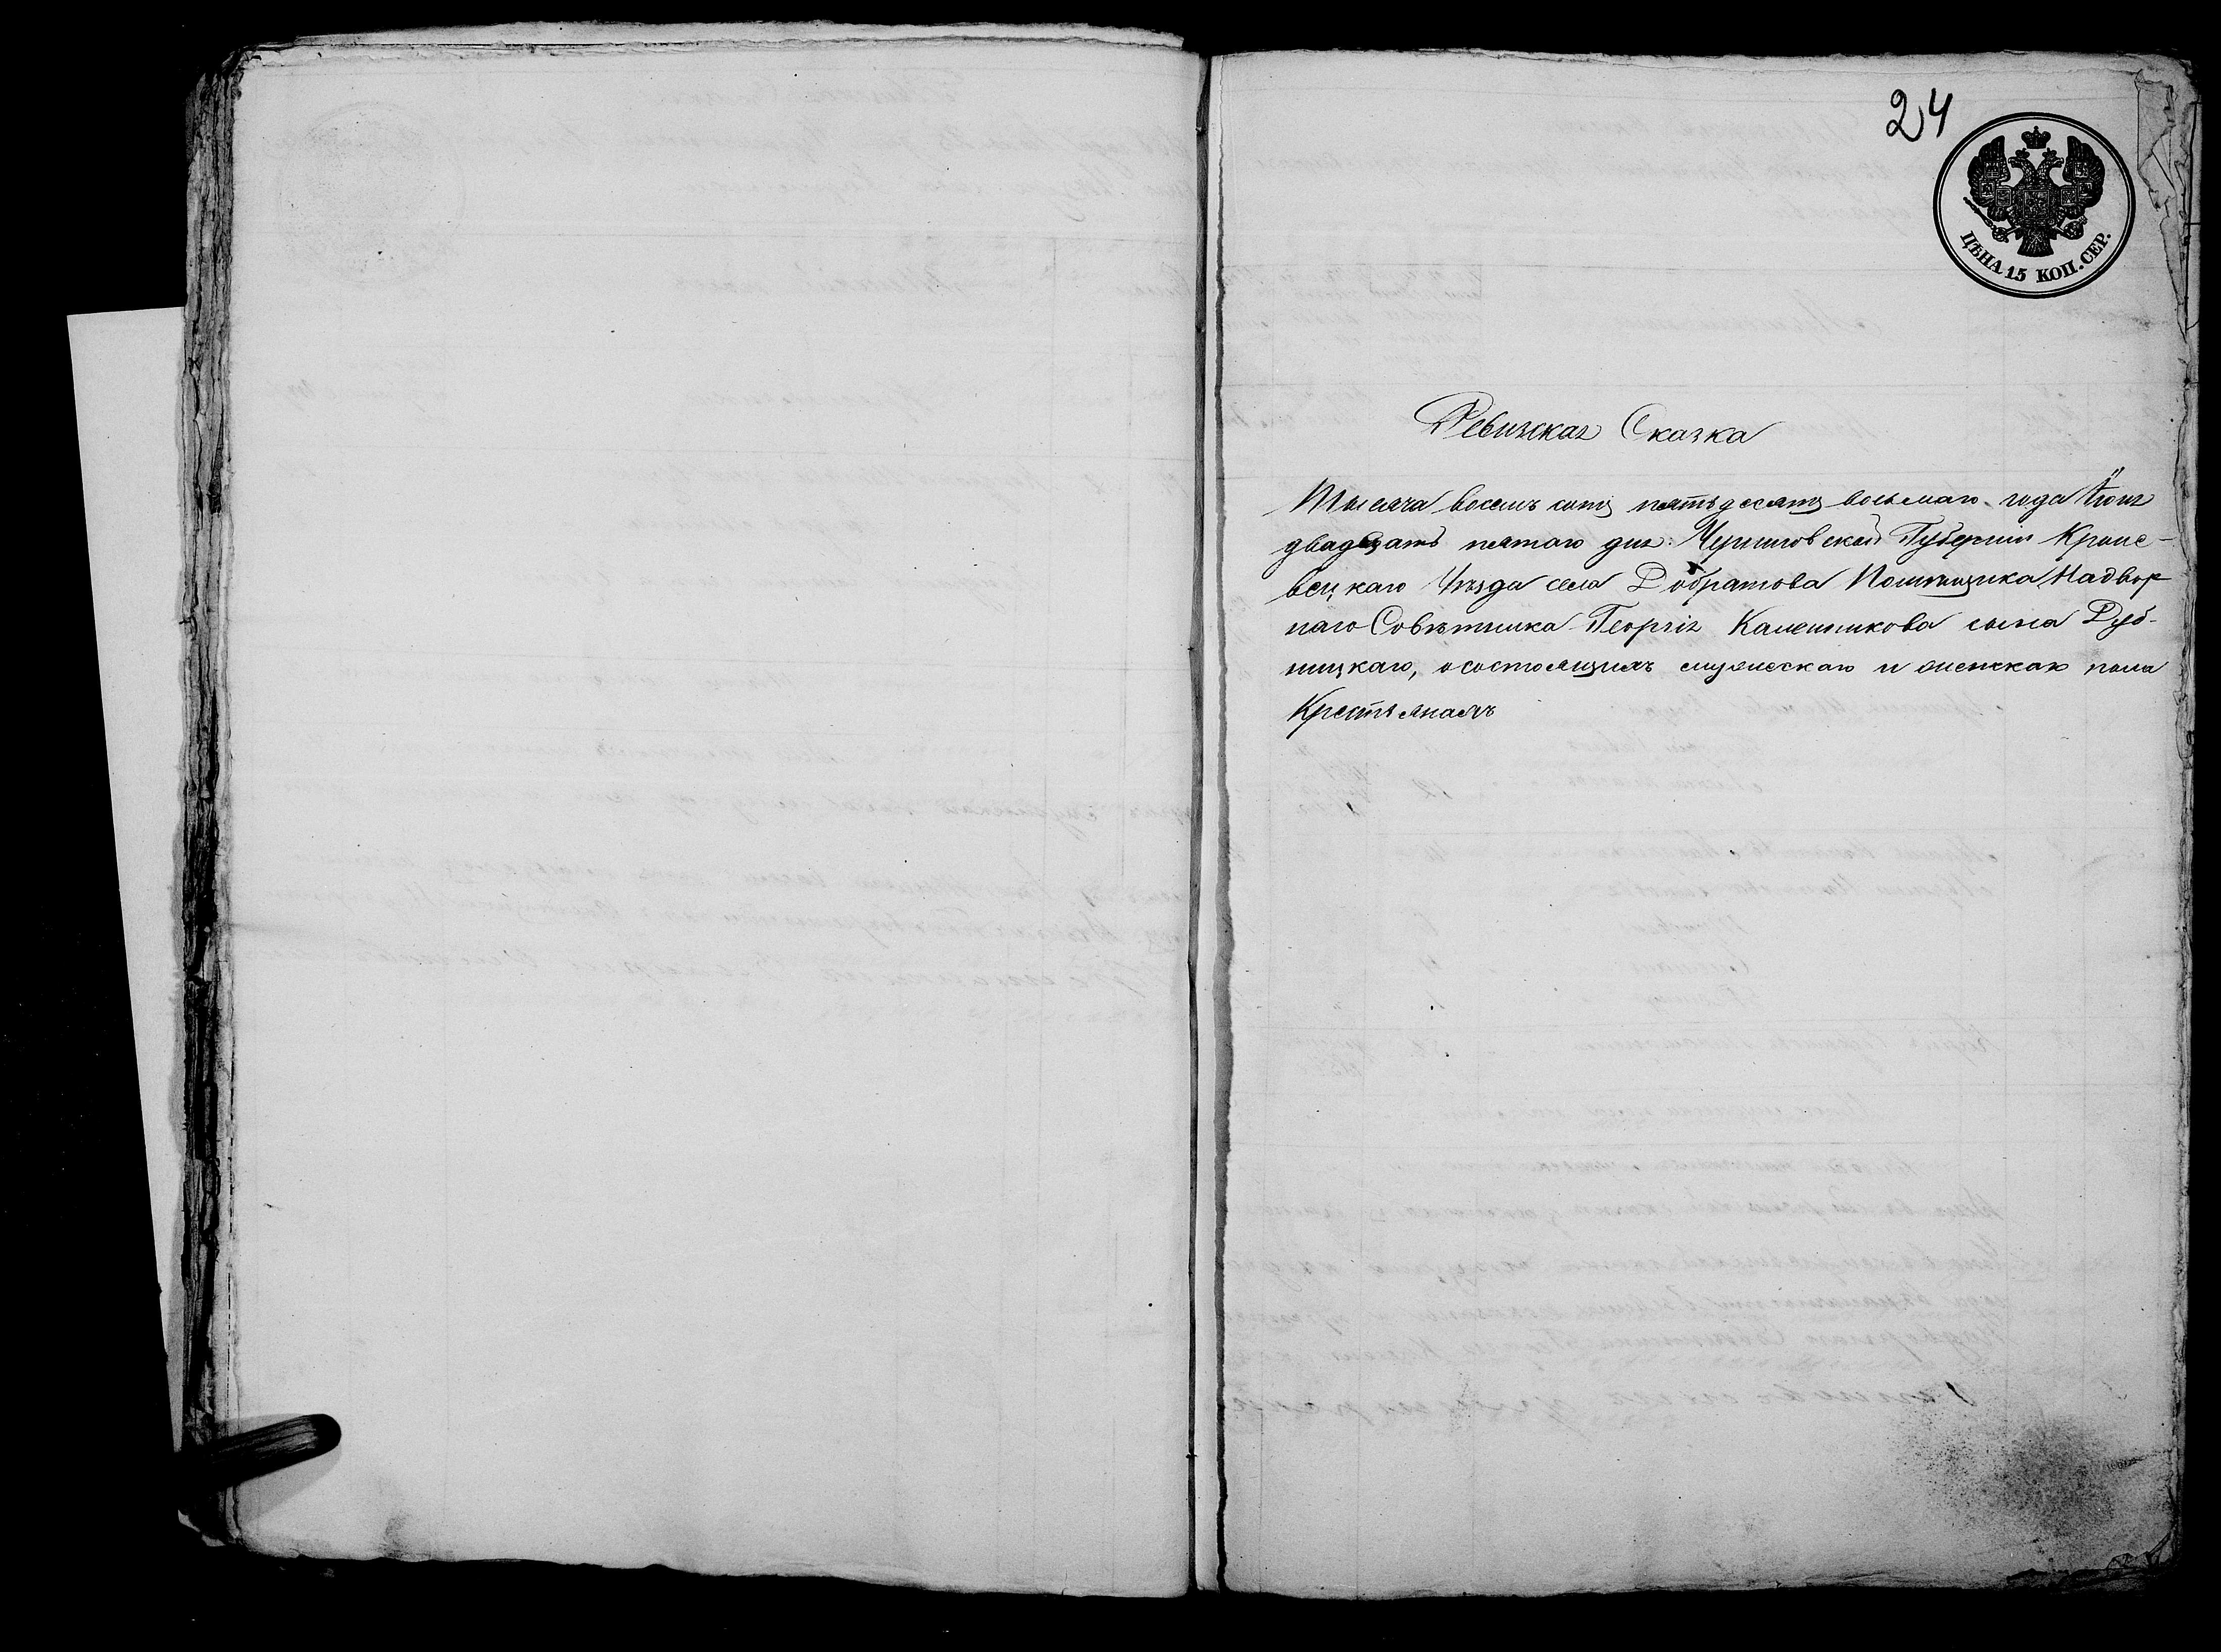 24
ЦѢНА 15 КОП. СЕР.
Ревизская Сказка
Тысяча восемь сотъ пятьдесятъ восьмаго года Іюня
двадцать пятаго дня: Черниговской Губерніи Кроле-
вецкаго Уѣзда села Добратова Помѣщика Надвор
наго Совѣтника Георгія Каленикова сына Дуб-
ницкаго, о состоящихъ мужескаго и женскаго пола
Крестьянахъ